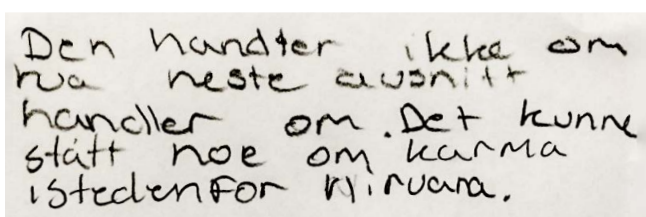 Den handler ikke om
hva neste avsnitt
handler om. Det kunne
stått noe om karma
istedenfor Nirvana.